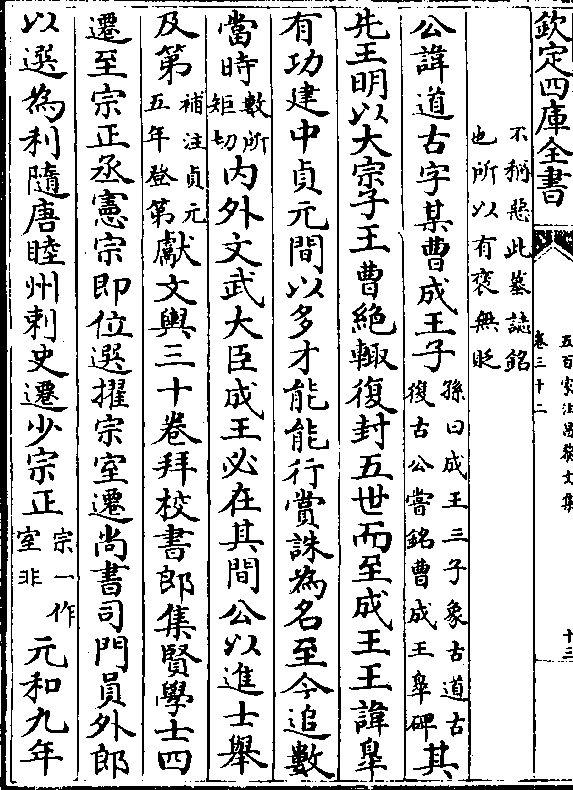 欽定四庫全書
五百家注昌黎文集
卷三十二
十三
不稱惡此墓誌銘
也所以有褒無貶
公諱道古字某曹成王子孫曰成王三子象古道古復古公嘗銘曹成王臯碑其
先王明以大宗子王曹絶輙復封五世而至成王王諱臯
有功建中貞元間以多才能能行賞誅為名至今追數
當時數所矩切內外文武大臣成王必在其間公以進士舉
及第補注貞元五年登第獻文輿三十卷拜校書郎集賢學士四
遷至宗正丞憲宗即位選擢宗室遷尚書司門員外郎
以選為利隨唐睦州刺史遷少宗正宗一作室非元和九年